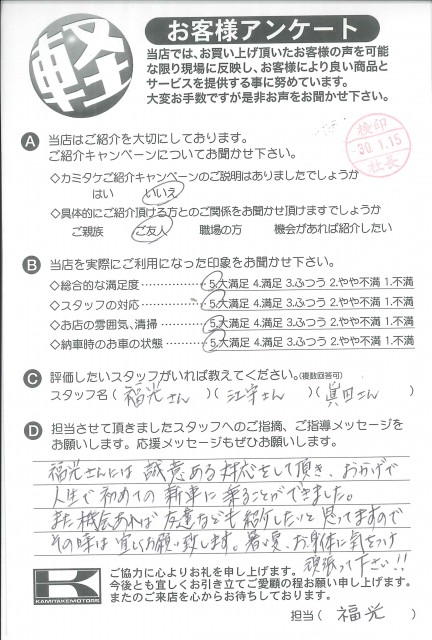 軽
お客様アンケート
当店では、お買い上げ頂いたお客様の声を可能
な限り現場に反映し、お客様により良い商品と
サービスを提供する事に努めています。
大変お手数ですが是非お声をお聞かせ下さい。
検印
30.1.15
社長
A 当店はご紹介を大切にしております。
ご紹介キャンペーンについてお聞かせ下さい。
◇カミタケご紹介キャンペーンのご説明はありましたでしょうか
はい いいえ
◇具体的にご紹介頂ける方とのご関係をお聞かせ頂けますでしょうか
ご親族 ご友人 職場の方 機会があれば紹介したい
B 当店を実際にご利用になった印象をお聞かせ下さい。
◇総合的な満足度‥‥‥‥‥ 5.大満足 4.満足 3.ふつう 2.やや不満 1.不満
◇スタッフの対応‥‥‥‥‥ 5.大満足 4.満足 3.ふつう 2.やや不満 1.不満
◇お店の雰囲気、清掃‥‥‥ 5.大満足 4.満足 3.ふつう 2.やや不満 1.不満
◇納車時のお車の状態‥‥‥ 5.大満足 4.満足 3.ふつう 2.やや不満 1.不満
C 評価したいスタッフがいれば教えてください。(複数回答可)
スタッフ名(福光さん)(江守さん)(眞田さん)
D 担当させて頂きましたスタッフへのご指摘、ご指導メッセージを
お願いします。応援メッセージもぜひお願いします。
福光さんには誠意ある対応をして頂き、おかげで
人生で初めての新車に乗ることができました。
また機会あれば友達なども紹介したいと思ってますので
その時は宜しくお願い致します。暑い夏、お身体に気をつけ
頑張って下さい!!
K
KAMITAKEMOTORS
ご協力に心よりお礼を申し上げます。
今後とも宜しくお引き立てご愛顧の程お願い申し上げます。
またのご来店を心からお待ちしております。
担当(福光)